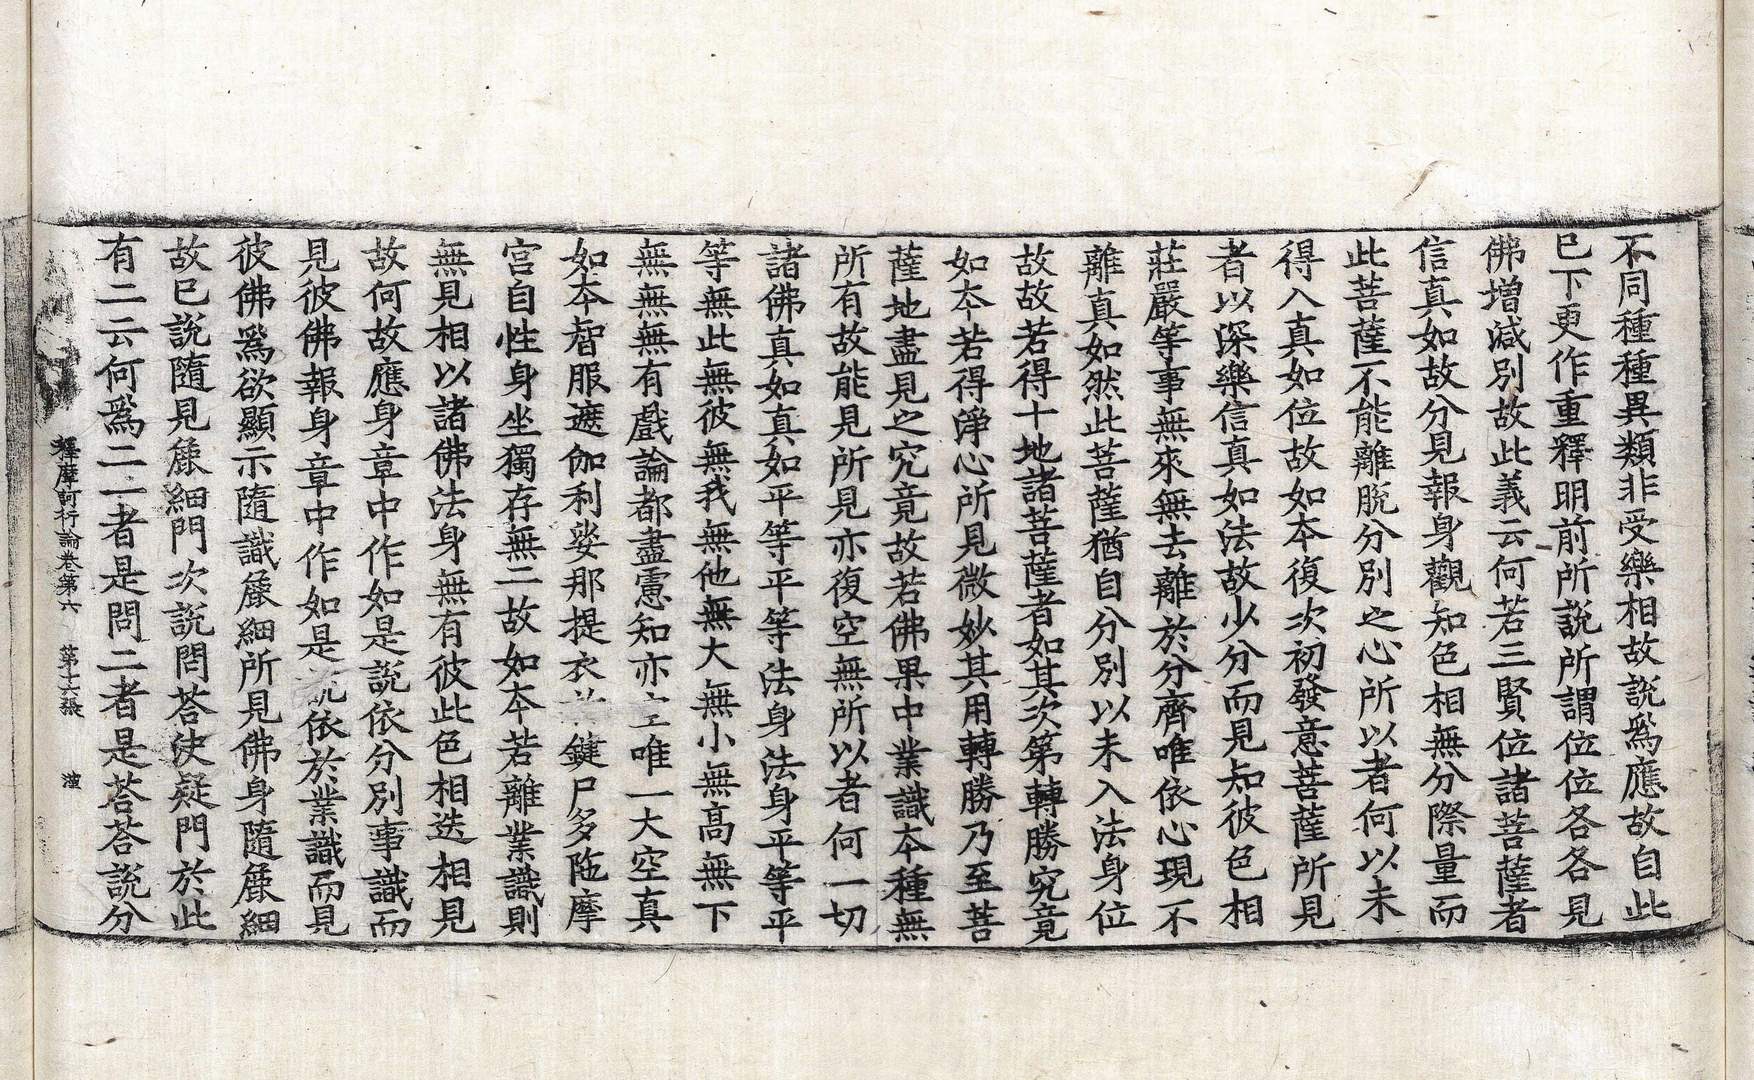 不同種種異類非受樂相故說爲應故自此
已下更作重釋明前所說所謂位位各各見
佛增减別故此義云何若三賢位諸菩薩者
信真如故分見報身觀知色相無分際量而
此菩薩不能離脫分別之心所以者何以未
得入真如位故如夲復次初發意菩薩所見
者以深樂信真如法故少分而見知彼色相
莊嚴等事無來無去離於分齊唯依心現不
離真如然此菩薩猶自分別以未入法身位
故故若得十地諸菩薩者如其次第轉勝究竟
如夲若得淨心所見微妙其用轉勝乃至菩
薩地盡見之究竟故若佛果中業識夲種無
所有故能見所見亦復空無所以者何一切
諸佛真如真如平等平等法身法身平等平
等無此無彼無我無他無大無小無高無下
無無無有戲論都盡慮知亦唯一大空真
如夲智服遮伽利娑那提衣鍵尸多陁摩
宮自性身坐獨存無二故如夲若離業識則
無見相以諸佛法身無有彼此色相迭相見
故何故應身章中作如是說依分別事識而
見彼佛報身章中作如是說依於業識而見
彼佛爲欲顯示隨識麁細所見佛身隨麁細
故已說隨見麁細門次說問荅決疑門於此
有二云何爲二一者是問二者是荅荅說分
釋摩訶衍論卷第六 第十六張 漢